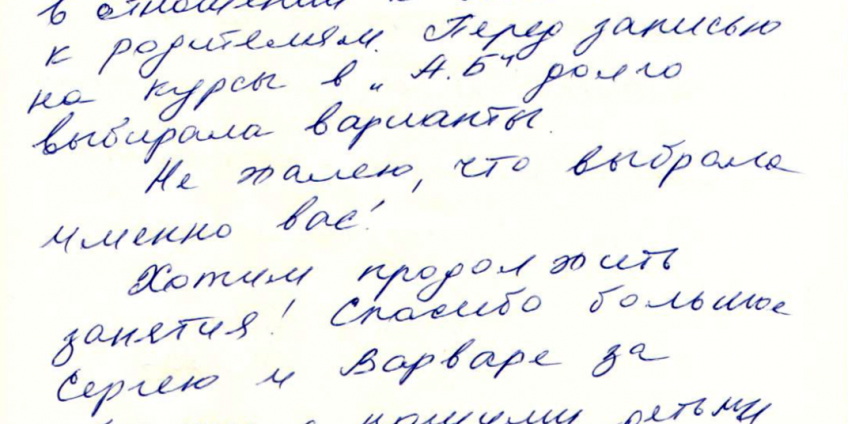 в отношении
к родителям. Перед записью
на курсы в „А.Б“ долго
выбирала варианты.
Не жалею, что выбрала
именно вас!
Хотим продолжить
занятия! Спасибо большое
Сергею и Варваре за
нашими детьми